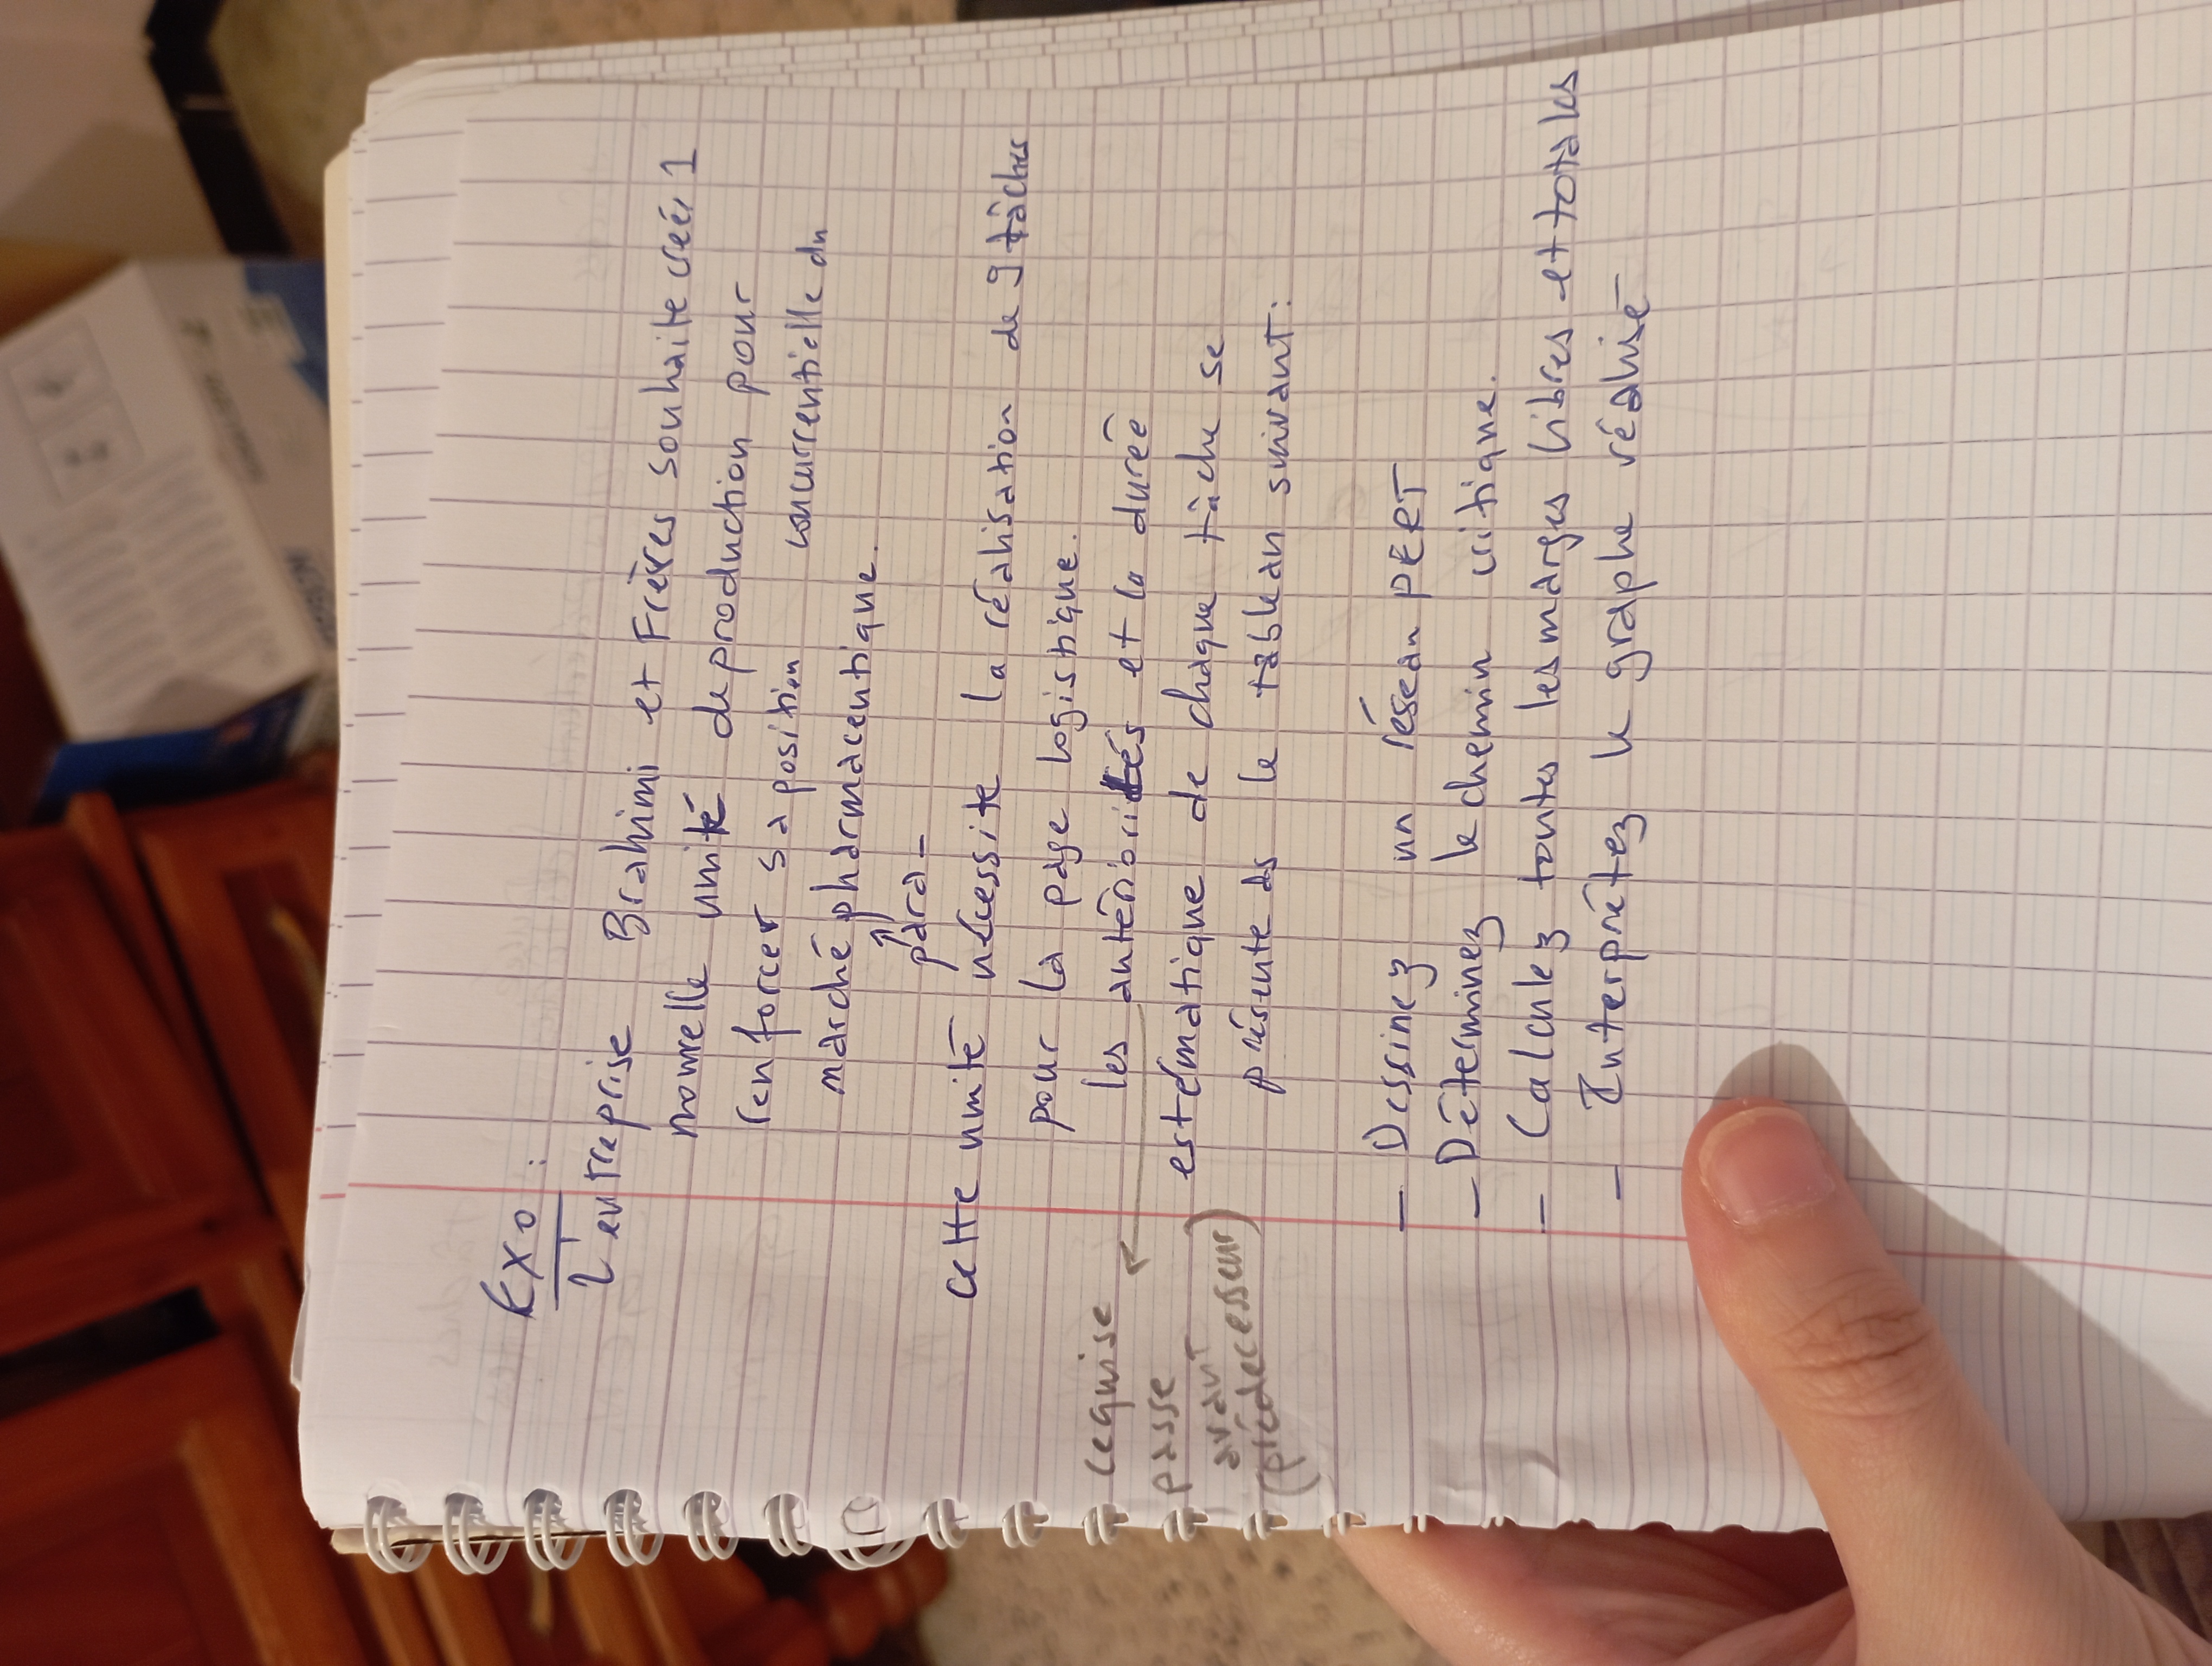 Exo :
L'entreprise Brahimi et Frères souhaite créer 1
nouvelle unité de production pour
renforcer sa position concurrentielle du
marché pharmaceutique.
para-
cette unité nécessite la réalisation de 9 tâches
pour la page logistique.
les antériorités et la durée
requise
passe
avant
(prédecesseur)
estématique de chaque tâche se
présente ds le tableau suivant:
- Dessinez un réseau PERT
- Déterminez le chemin critique.
- Calculez toutes les marges libres et totales
- Interprêtez le graphe réalisé